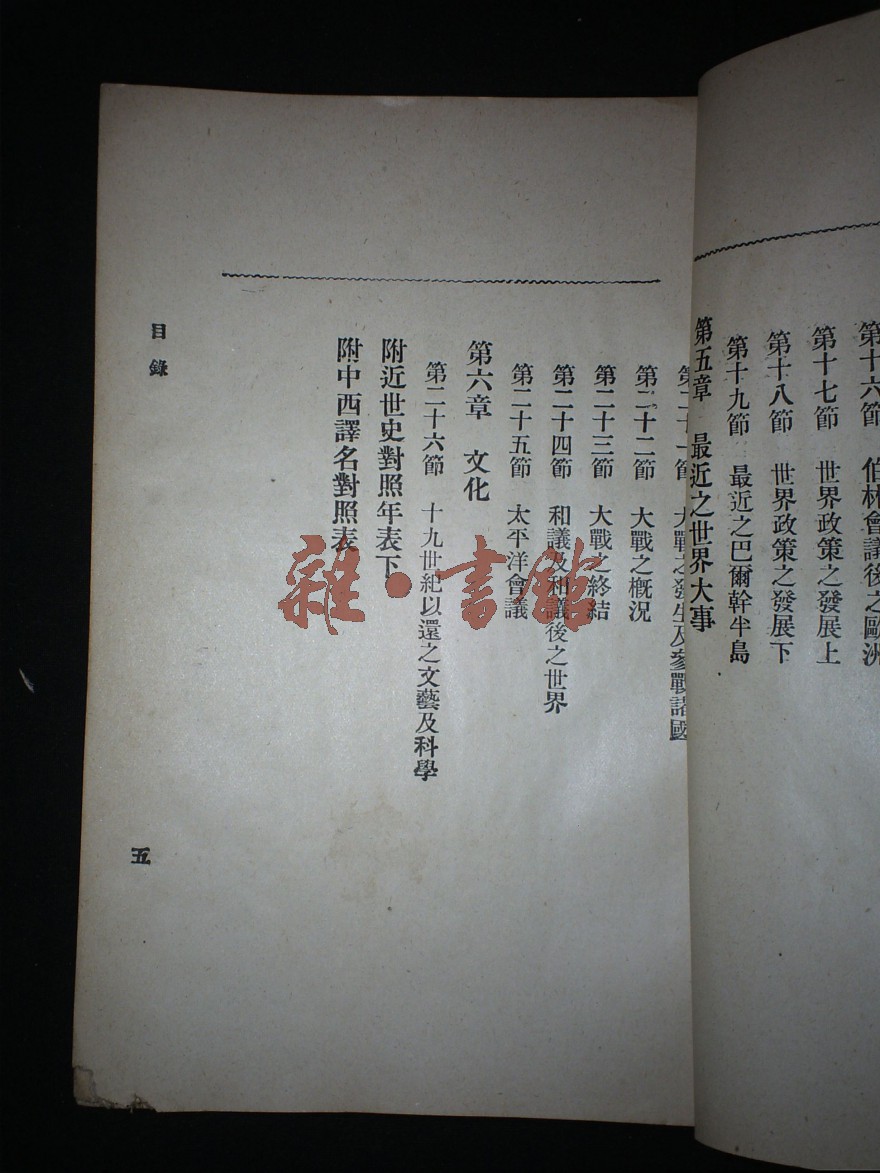 第十六節　伯林會議後之歐洲
第十七節　世界政策之發展上
第十八節　世界政策之發展下
第十九節　最近之巴爾幹半島
第五章　最近之世界大事
第二十一節　大戰之發生及參戰諸國
第二十二節　大戰之概況
第二十三節　大戰之終結
第二十四節　和議及和議後之世界
第二十五節　太平洋會議
第六章　文化
第二十六節　十九世紀以還之文藝及科學
附近世史對照年表下
附中西譯名對照表
目錄
五
雜·書館